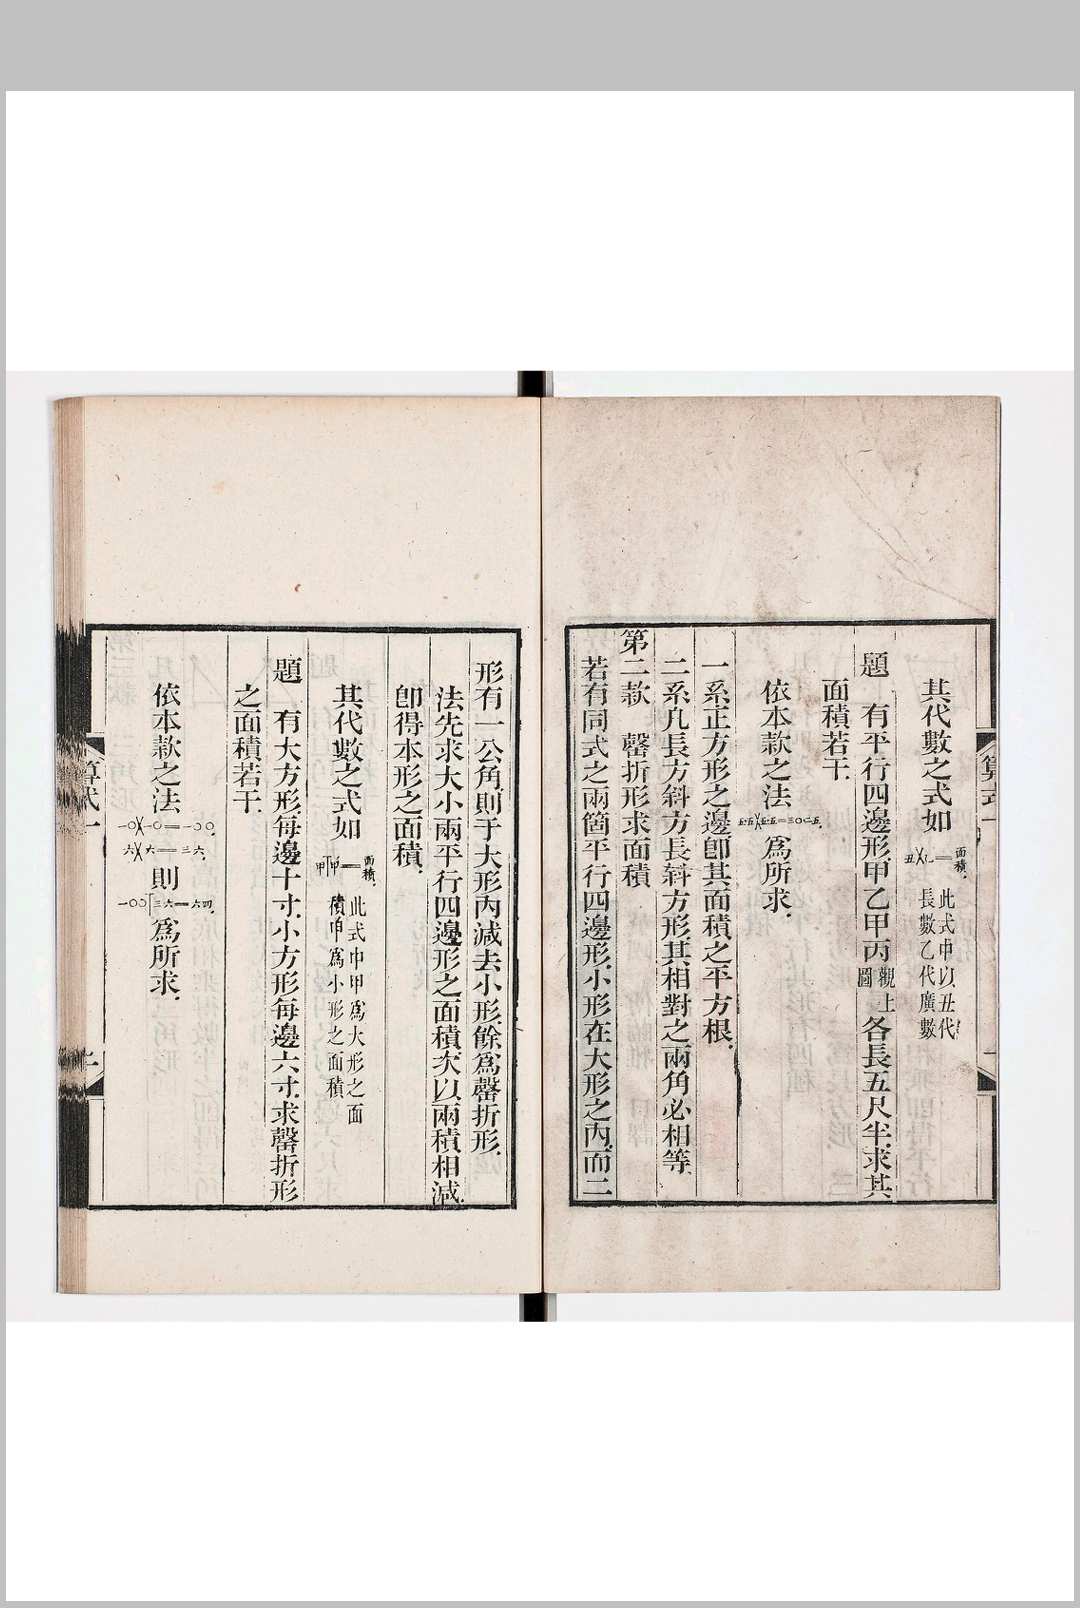 其代數之式如丑×乙=面積.此式中以丑代長數乙代廣數
題　有平行四邊形.甲乙甲丙觀上圖各長五尺半.求其
面積若干.
依本款之法五·五×五·五=三〇·二五.為所求.
一系正方形之邊.卽其面積之平方根.
二系凡長方斜方長斜方形.其相對之兩角必相等.
第二款　磬折形求面積
若有同式之兩箇平行四邊形.小形在大形之內.而二
形有一公角.則于大形內減去小形.餘為磬折形.
法先求大小兩平行四邊形之面積.次以兩積相減.
卽得本形之面積.
其代數之式如甲丅呷=面積.此式中甲為大形之面積呷為小形之面積
題　有大方形.每邊十寸.小方形每邊六寸.求磬折形
之面積若干.
依本款之法一〇×一〇=一〇〇.六×六=三六.則一〇〇丅三六=六四.為所求.
算式一